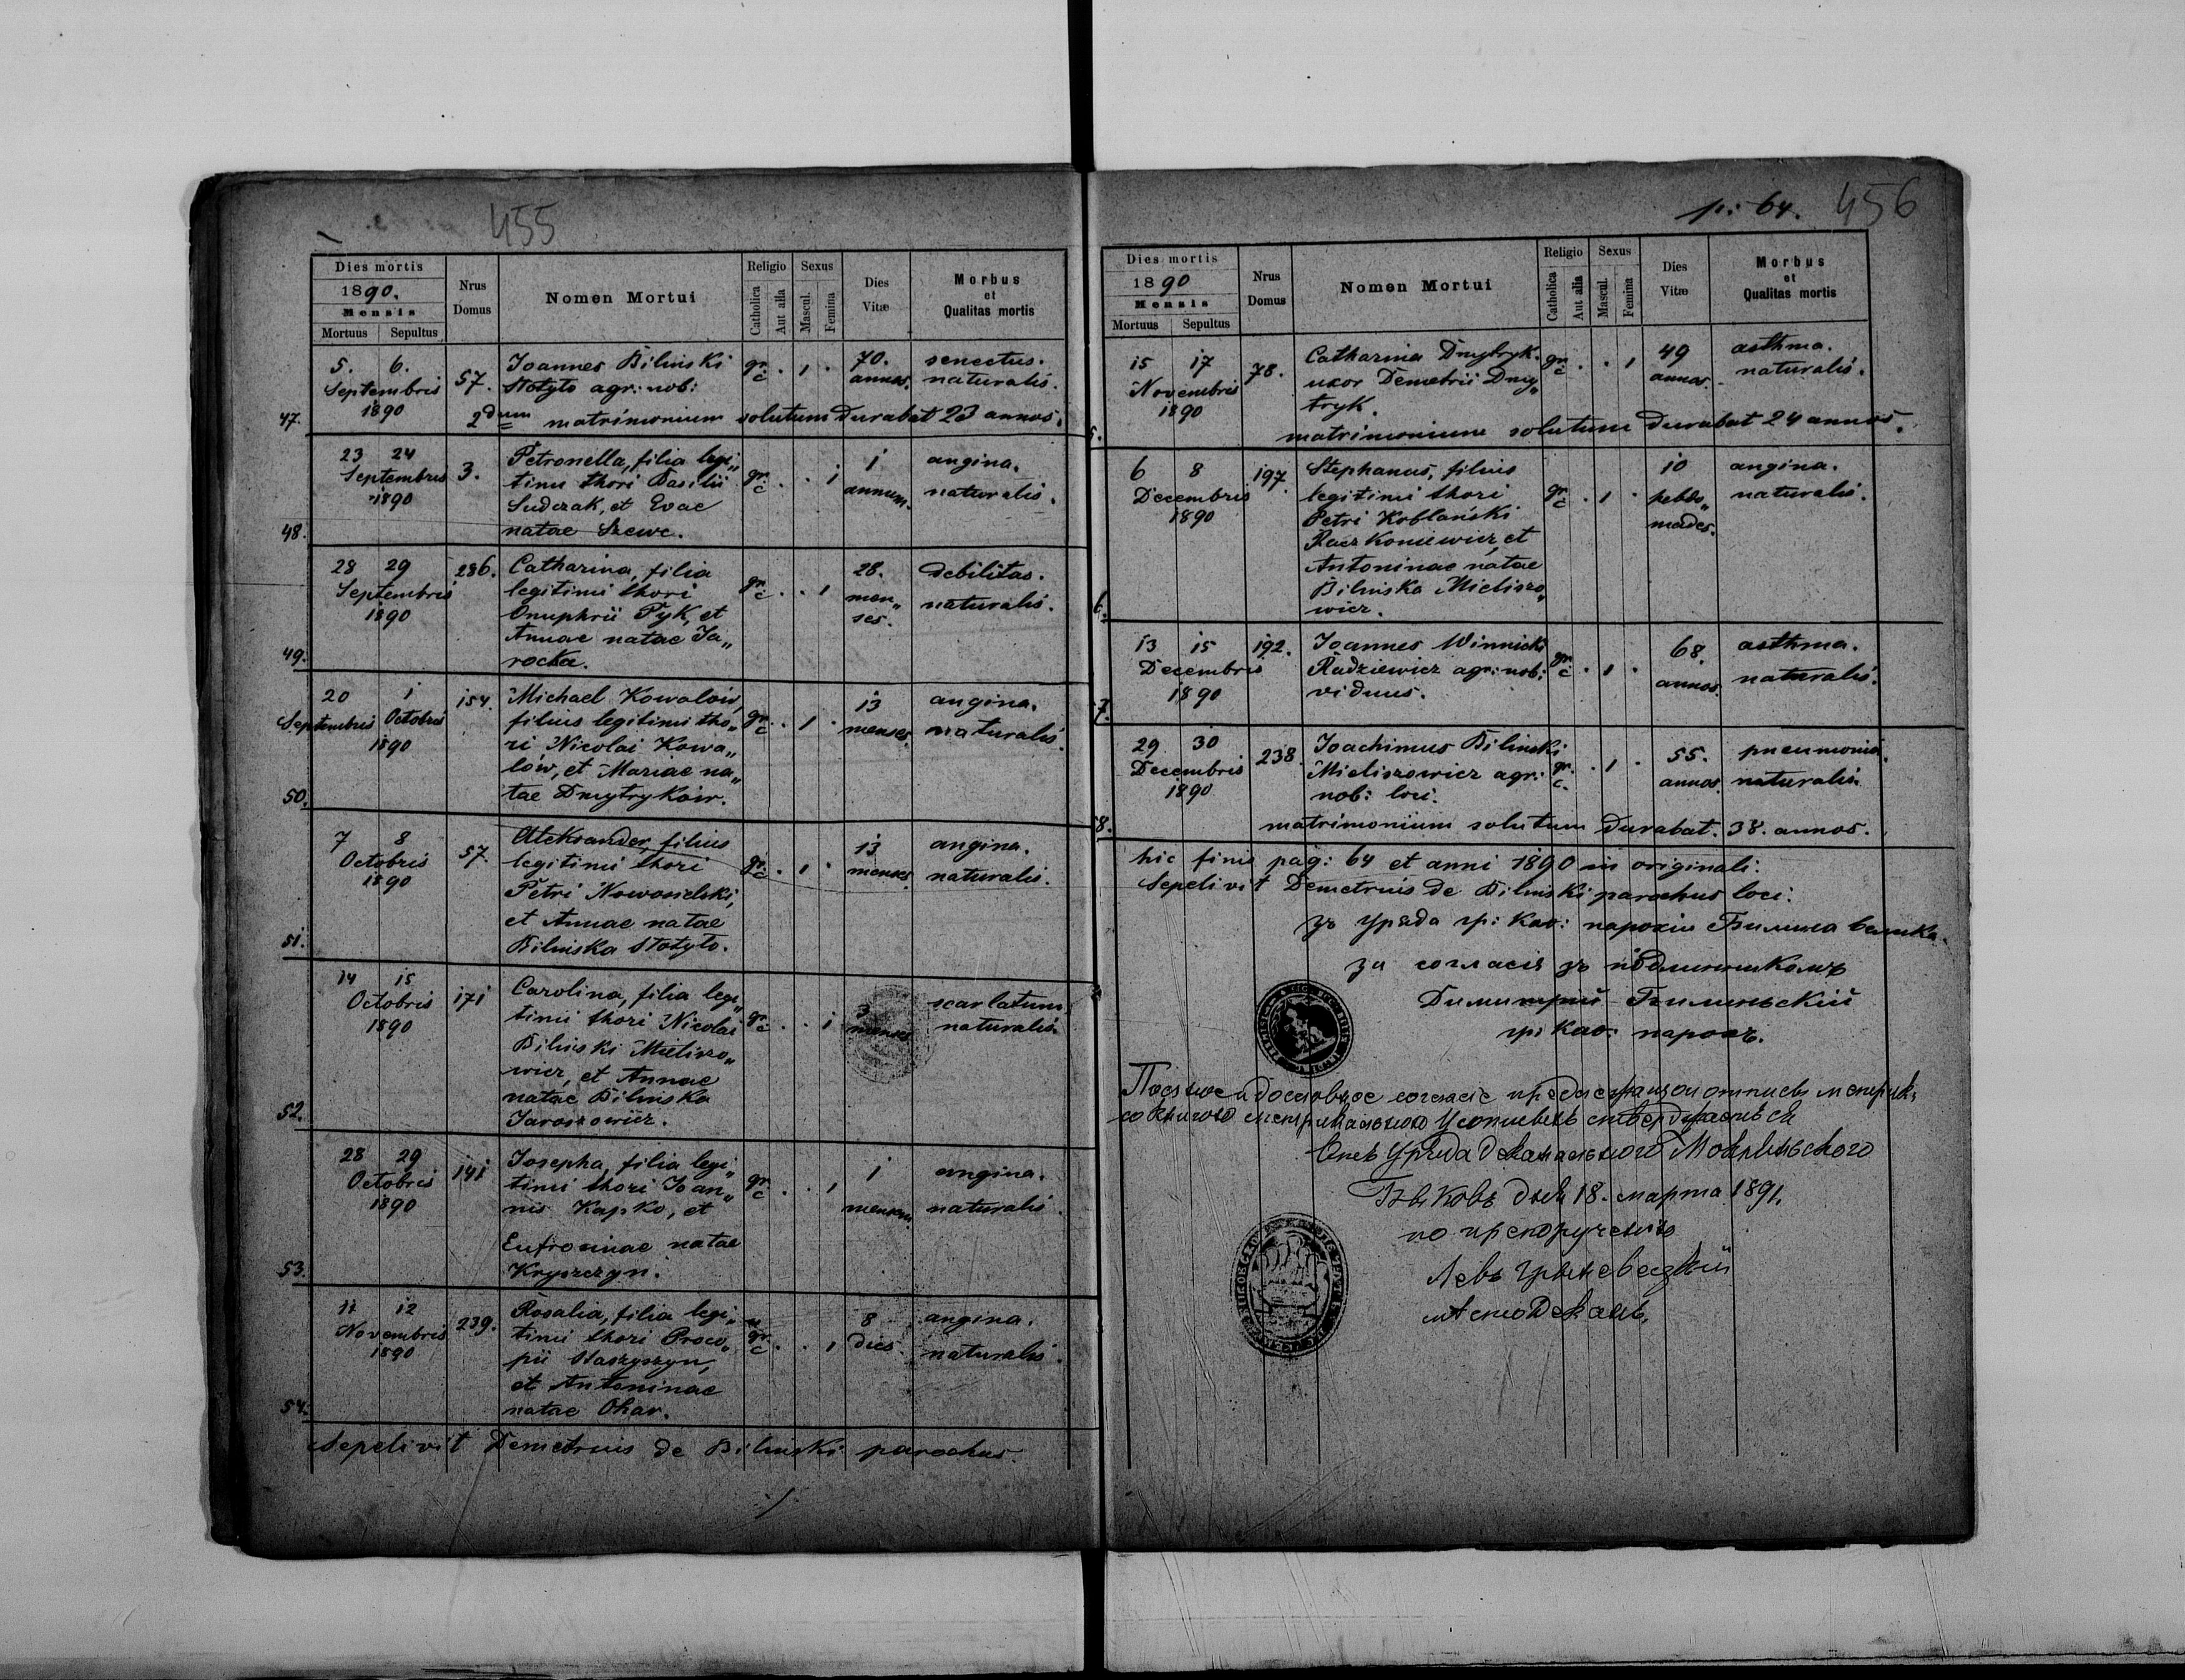 455
Dies mortis
1890.
Mensis
Mortuus Sepultus
Nrus Domus
Nomen Mortui
Religio
Catholica
Aut alia
Sexus
Mascul.
Femina
Dies Vitæ
Morbus et Qualitas mortis
47. 5. 6. 57. Joannes Bilinski gr. 1 70. senectus.
Septembris Stotyło agr: nob: c annos. naturalis.
1890 2dum matrimonium solutum durabat 23 annos.
48. 23 24 3. Petronella, filia legi„ gr. 1 1 angina.
Septembris timi thori Basilii c annum. naturalis.
1890 Sudczak, et Evae
natae Szewc.
49. 28 29 286. Catharina, filia gr. 1 28. debilitas.
Septembris legitimi thori c men„ naturalis.
1890 Onuphrii Pyk, et ses.
Annae natae Ja„
rocka.
50. 20 1 154. Michael Kowalów, gr. 1 13 angina.
Septembris Octobris filius legitimi tho„ c menses. naturalis.
1890 ri Nicolai Kowa„
lów, et Mariae na„
tae Dmytryków.
51. 7 8 57. Aleksander, filius gr. 1 13 angina.
Octobris legitimi thori c menses. naturalis.
1890 Petri Nowosielski,
et Annae natae
Bilinska Stotyło.
52. 14 15 171 Carolina, filia legi„ gr. 1 3 scarlatum
Octobris timi thori Nicolai c menses naturalis.
1890 Bilinski Mieliszo„
wicz, et Annae
natae Bilinska
Jaroszowicz.
53. 28 29 141 Josepha, filia legi„ gr. 1 1 angina.
Octobris timi thori Joan„ c mensem. naturalis.
1890 nis Kapko, et
Eufrosinae natae
Kryszczyn.
54. 11 12 239. Rosalia, filia legi„ gr. 1 8 angina.
Novembris timi thori Proco„ c dies. naturalis.
1890 pii Staszyszyn,
et Antoninae
natae Ohar.
Sepelivit Demetrius de Bilinski parochus.
p: 64. 456
Dies mortis
1890
Mensis
Mortuus Sepultus
Nrus Domus
Nomen Mortui
Religio
Catholica
Aut alia
Sexus
Mascul.
Femina
Dies Vitæ
Morbus et Qualitas mortis
15 17 78. Catharina Dmytryk. gr. 1 49 asthma.
Novembris uxor Demetrii Dmy„ c annos. naturalis.
1890 tryk.
5. matrimonium solutum durabat 24 annos.
6 8 197. Stephanus, filius gr. 1 10 angina.
Decembris legitimi thori c hebdo„ naturalis.
1890 Petri Koblański mades.
Raczkoniewicz, et
Antoninae natae
Bilinska Mieliszo„
6. wicz.
13 15 192. Joannes Winnicki gr. 1 68. asthma.
Decembris Radziewicz agr: nob: c annos. naturalis.
1890 viduus.
7.
29 30 238. Joachimus Bilinski gr. 1 55. pneumonia.
Decembris Mieliszowicz agr: c. annos. naturalis.
1890 nob: loci.
8. matrimonium solutum durabat. 38. annos.
hic finis pag: 64 et anni 1890 in originali.
Sepelivit Demetrius de Bilinski parochus loci.
зъ уряда гр: Као: парохіи Билина велика.
за согласіе зъ подлинникомъ
Димитрій Билиньскій
гр: Као: парохъ.
Позное и дословное согласіе
Днѣ 18. марта 1891.
по препорученію
Левъ
мѣстодеканъ.